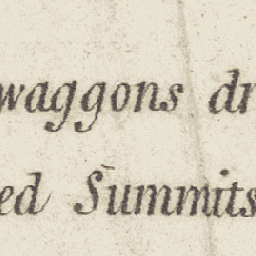 waggons dr
ed Summits